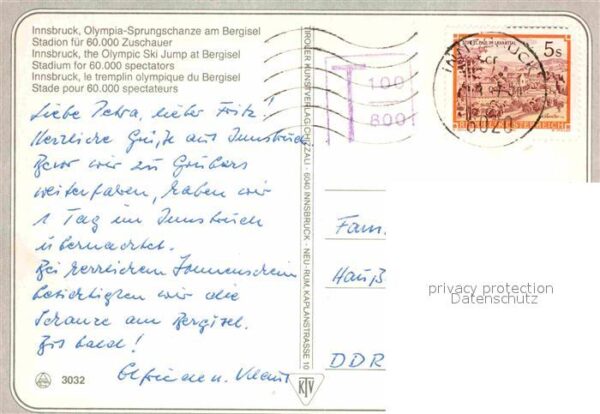 Innsbruck, Olympia-Sprungschanze am Bergisel
Stadion für 60.000 Zuschauer
Innsbruck, the Olympic Ski Jump at Bergisel
Stadium for 60.000 spectators
Innsbruck, le tremplin olympique du Bergisel
Stade pour 60.000 spectateurs
Liebe Petra, lieber Fritz!
Herzliche Grüße aus Innsbruck
Bevor wir zu Grubers
weiterfahren, haben wir
1 Tag in Innsbruck
übernachtet.
Bei herrlichem Sonnenschein
besichtigten wir die
Schanze am Bergisel.
Bis bald!
Elfriede u. Klaus
3032
TIROLER KUNSTVERLAG CHIZZALI · 6040 INNSBRUCK - NEU-RUM, KAPLANSTRASSE 10
KTV
T
100
600
5s
ÖSTERREICH
6020
Fam.
Hauß
DDR
privacy protection
Datenschutz